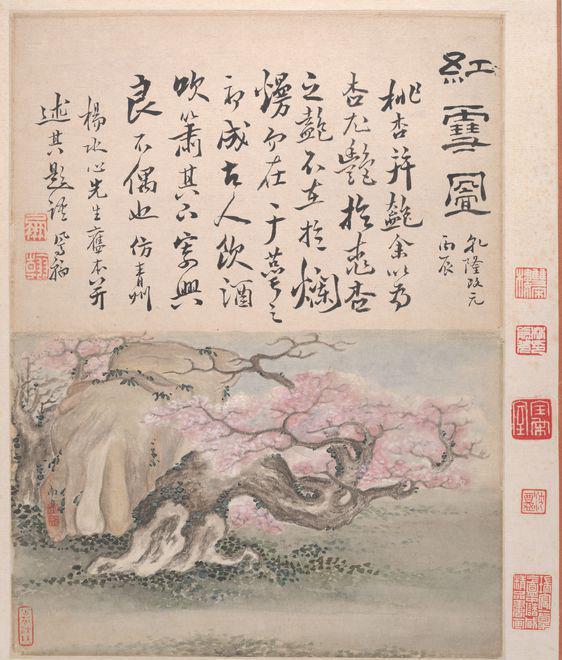 紅雪圖
乾隆改元
丙辰
桃杏艷余以為
杏尤艷於桃杏
之艷不在於爛
熳而在于萼之
初成古人飲酒
吹簫其下寄興
良不偶也仿青州
楊水心先生舊本并
述其題語 鳳翰
南阜